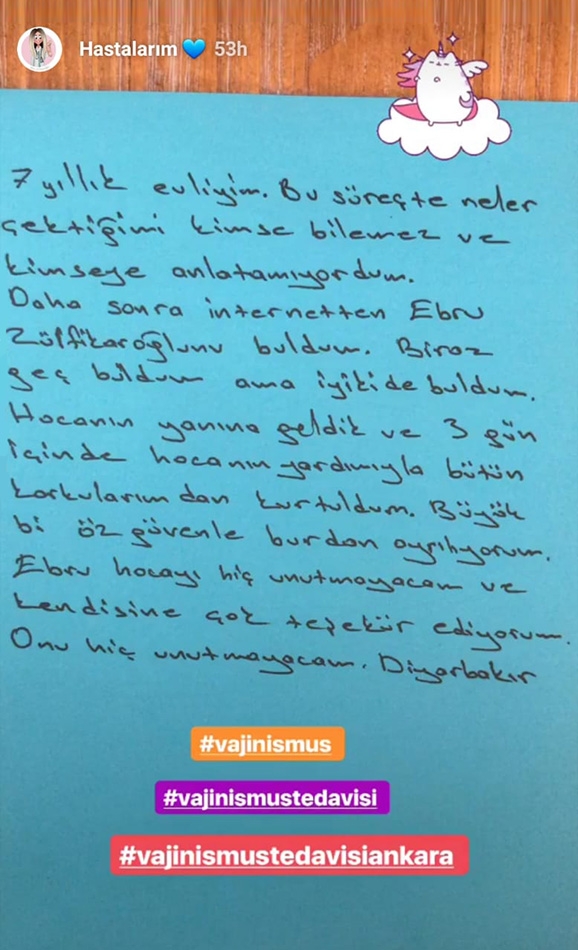 Hastalarım 💙 53h
7 yıllık evliyim. Bu süreçte neler
çektiğimi kimse bilemez ve
kimseye anlatamıyordum.
Daha sonra internetten Ebru
Zülfikaroğlunu buldum. Biraz
geç buldum ama iyikide buldum.
Hocanın yanına geldik ve 3 gün
içinde hocanın yardımıyla bütün
korkularımdan kurtuldum. Büyük
bi öz güvenle burdan ayrılıyorum.
Ebru hocayı hiç unutmayacam ve
kendisine çok teşekür ediyorum.
Onu hiç unutmayacam. Diyarbakır
#vajinismus
#vajinismustedavisi
#vajinismustedavisiankara